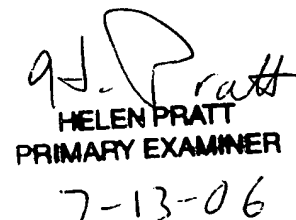 H. Pratt
HELEN PRATT
PRIMARY EXAMINER
7-13-06